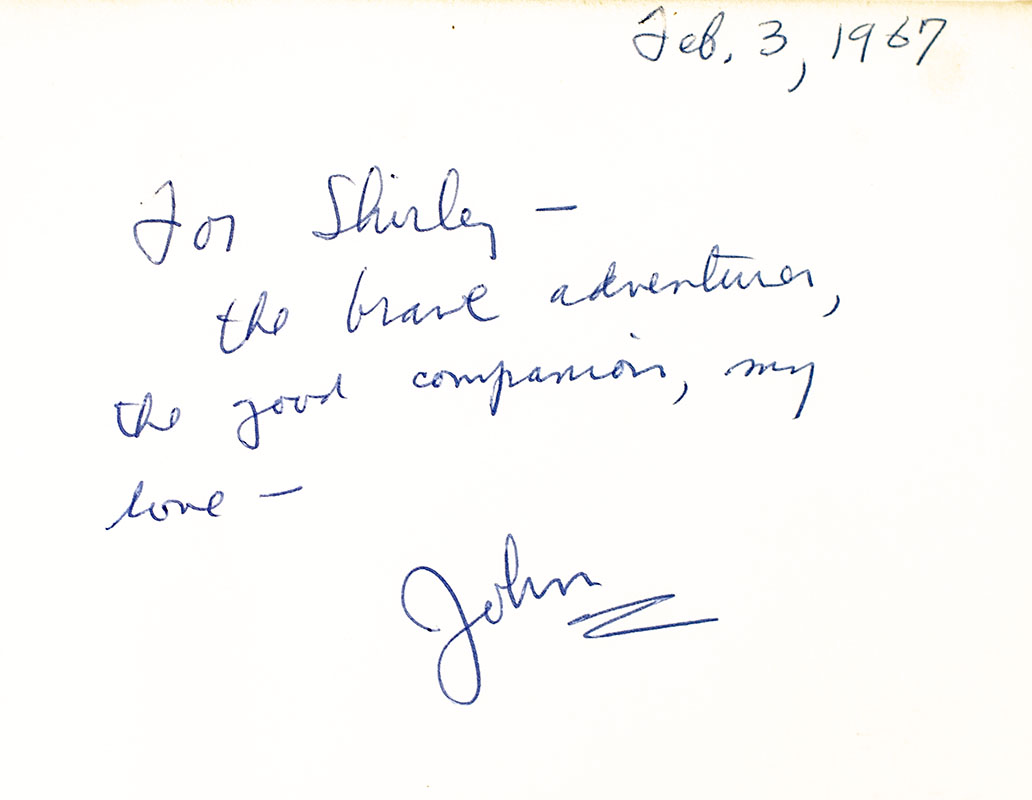 Feb. 3, 1967
For Shirley –
the brave adventurer,
the good companion, my
love –
John